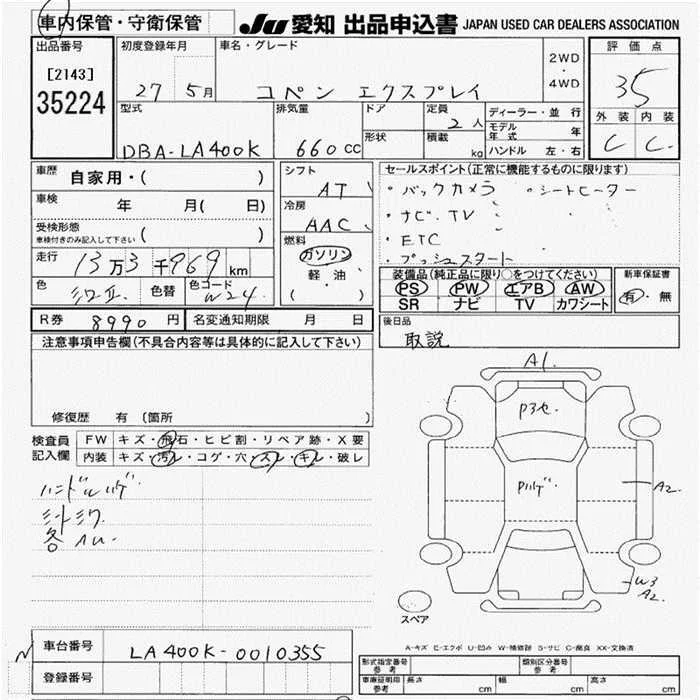 車内保管・守衛保管
JU 愛知 出品申込書 JAPAN USED CAR DEALERS ASSOCIATION
出品番号 [2143] 35224
初度登録年月 27 5月
車名・グレード コペン エクスプレイ
2WD・4WD
評価点 35
外装 C 内装 C
型式 DBA-LA400K
排気量 660 CC
ドア 形状
定員 2人
積載 kg
ディーラー・並行
モデル年式 年
ハンドル 左・右
車歴 自家用・( )
車検 年 月( 日)
受検形態 車検付きのみ記入して下さい ( )
走行 13万3千969km
色 色替 色コード W24
シフト AT
冷房 AAC
燃料 ガソリン 軽油 ( )
セールスポイント(正常に機能するものに限ります)
・バックカメラ ・シートヒーター
・ナビ.TV
・ETC
・プッシュスタート
装備品(純正品に限り○をつけてください)
PS PW エアB AW
SR ナビ TV カワシート
新車保証書 有・無
R券 8990円 名変通知期限 月 日
後日品 取説
注意事項申告欄(不具合内容等は具体的に記入して下さい)
修復歴 有 (箇所 )
検査員記入欄
FW キズ・飛石・ヒビ割・リペア跡・X要
内装 キズ・汚レ・コゲ・穴・スレ・キレ・破レ
各AU.
A1.
A2.
W3
A2.
スペア
A-キズ E-エクボ U-凹み W-補修跡 S-サビ C-腐食 XX-交換済
車台番号 LA400K-0010355
登録番号
形式指定番号 参考
類別区分番号 参考
車庫証明用 参考 長さ cm 幅 cm 高さ cm